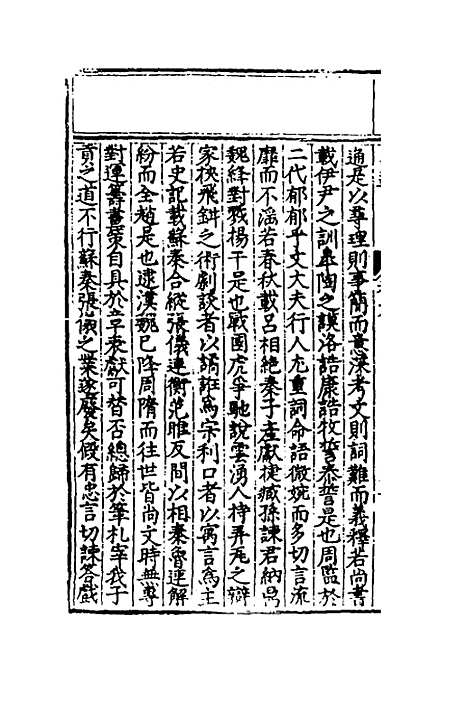 通是以尋理則事簡而意深考文則詞難而義釋若尚書
載伊尹之訓皐陶之謨洛誥康誥牧誓泰誓是也周監於
二代郁郁乎文大夫行人尤重詞命語微婉而多切言流
靡而不滛若春秋載呂相絶秦子產獻捷臧孫諫君納鼎
魏絳對戮楊干是也戰國虎爭馳說雲湧人持弄丸之辯
家挾飛鉗之術劇談者以譎誑爲宗利口者以寓言爲主
若史記載蘇秦合縱張儀連衡范雎反間以相秦魯連解
紛而全趙是也逮漢魏已降周隋而徃世皆尚文時無專
對運籌畫策自具於章表獻可替否總歸於筆札宰我子
貢之道不行蘇秦張儀之業遂廢矣假有忠言切諫荅戲